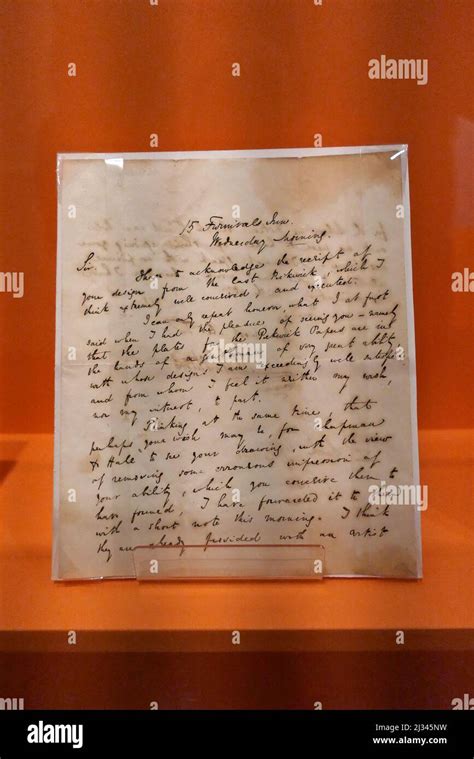 15 Furnivals Inn.
Wednesday Morning.
Sir
I have to acknowledge the receipt of
your design from the last Pickwick, which I
think extremely well conceived, and executed.
I can only repeat however what I at first
said when I had the pleasure of seeing you - namely
that the plates for the Pickwick Papers are in
the hands of a gentleman of very great ability
with whose designs I am exceedingly well satisfied
and from whom I feel it neither my wish,
nor my interest, to part.
Thinking, at the same time, that
perhaps your wish may be, for Chapman
& Hall to see your drawing, with the view
of removing some erroneous impression of
your ability, which you conceive them to
have formed, I have forwarded it to them
with a short note this morning. I think
they are already provided with an artist
alamy
alamy
alamy
Image ID: 2J345NW
www.alamy.com